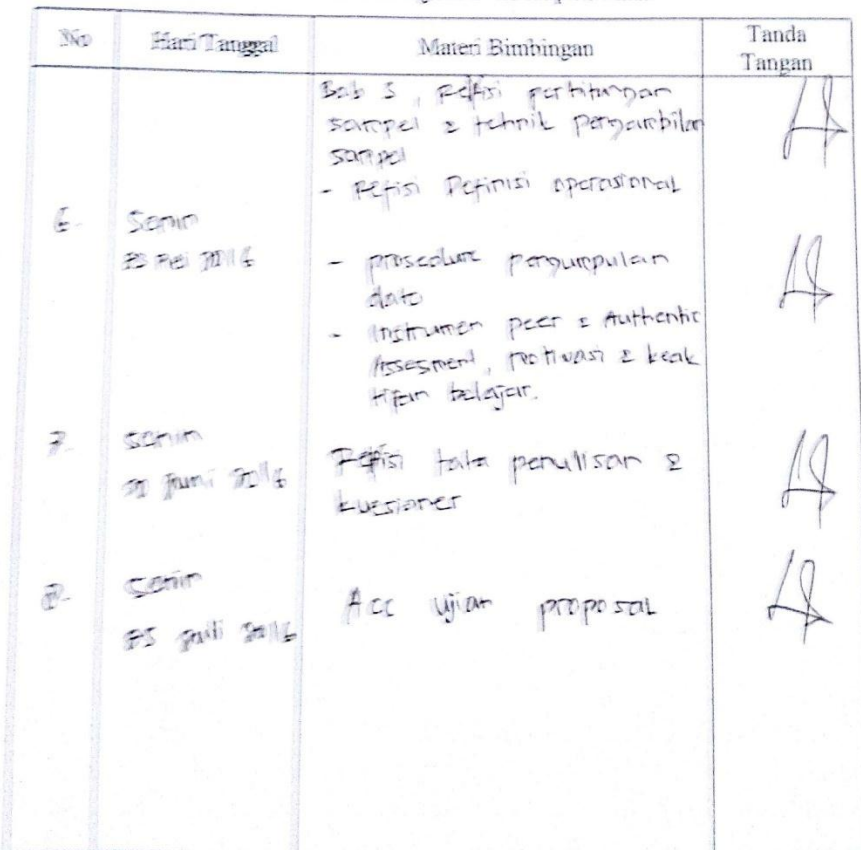 No Hari/Tanggal Materi Bimbingan Tanda Tangan
Bab 3, Refisi perhitungan
sampel & tehnik pengambilan
sampel
- Refisi Definisi operasional
6. Senin
23 Mei 2016
- prosedure pengumpulan
data
- Instrumen peer & Authentic
Assesment, motivasi & keak
tifan belajar.
7. Senin Refisi tata penulisan &
Juni 2016 kuesioner
8. Senin Acc ujian proposal
25 Juli 2016